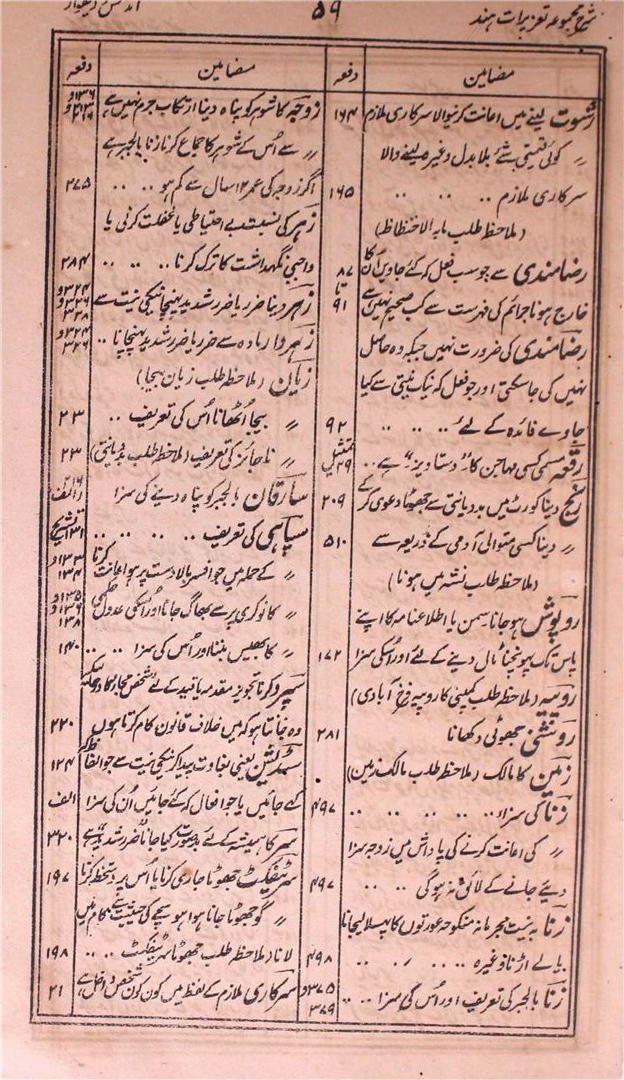 شرح مجموعہ تعزیرات ہند
۵۹
مضامین
دفعہ
رشوت لینے میں اعانت کرنیوالا سرکاری ملازم ۱۶۴
〃 کوئی قیمتی شئے بلا بدل وغیرہ لینے والا
سرکاری ملازم .. .. .. ۱۶۵
(ملاحظہ طلب مابہ الاحتظاظ)
رضامندی سے جو سب فعل کہ کئے جاویں اُن کا ۸۷ تا
خارج ہونا جرائم کی فہرست سے کب صحیح نہیں ہے ۹۱
رضامندی کی ضرورت نہیں جبکہ وہ حاصل
نہیں کی جاسکتی اور جو فعل کہ نیک نیتی سے کیا
جاوے فائدہ کے لئے .. .. .. ۹۲
رقعہ مسمی کسی مہاجن کا "دستاویز" ہے .. تمثیل ۲۹
رنج دینا کورٹ میں بددیانتی سے جھوٹا دعویٰ کر کے ۲۰۹
〃 دینا کسی متوالی آدمی کے ذریعہ سے ۵۱۰
(ملاحظہ طلب نشہ میں ہونا)
روپوش ہو جانا سمن یا اطلاعنامہ کا اپنے
پاس تک پہونچنا ٹال دینے کے لئے اور اُسکی سزا ۱۷۲
روپیہ (ملاحظہ طلب کمپنی کا روپیہ فرخ آبادی)
روشنی جھوٹی دکھانا ۲۸۱
زمین کا مالک (ملاحظہ طلب مالک زمین)
زنا کی سزا .. .. .. .. ۴۹۷
〃 کی اعانت کرنے کی پاداش میں زوجہ سزا
دیئے جانے کے لائق نہ ہوگی .. .. ۴۹۷
زنا بہ نیت مجرمانہ منکوحہ عورتوں کا پھسلا لیجانا
یا لے اڑنا وغیرہ .. .. .. .. ۴۹۸
زنا بالجبر کی تعریف اور اُس کی سزا .. .. ۳۷۵ و ۳۷۶
مضامین
دفعہ
زوجہ کا شوہر کو پناہ دینا ارتکاب جرم نہیں ہے ۱۳۶ و ۲۱۲ و ۲۱۶
〃 سے اُس کے شوہر کا جماع کرنا زنا بالجبر ہے
اگر زوجہ کی عمر ۱۲ سال سے کم ہو .. .. ۳۷۵
زہر کی نسبت بے احتیاطی یا غفلت کرنی یا
واجبی نگہداشت کا ترک کرنا .. .. .. ۲۸۴
زہر دینا ضرر یا ضرر شدید پہنچانیکی نیت سے ۳۲۴ و ۳۲۶ و ۳۲۸
زہردار مادہ سے ضرر یا ضرر شدید پہنچانا .. ۳۲۴ و ۳۲۶
زیان (ملاحظہ طلب زیان بیجا)
〃 بیجا اُٹھانا اُس کی تعریف .. ۲۳
〃 ناجائز کی تعریف (ملاحظہ طلب بددیانتی) ۲۳
سارقان بالجبر کو پناہ دینے کی سزا ۲۱۶ الف
سپاہی کی تعریف .. .. .. .. ۱۳۱ تشریح
〃 کے حملہ میں جو افسر بالادست پر ہو اعانت کرنا ۱۳۳ و ۱۳۴
〃 کا نوکری پر سے بھاگ جانا اور اُسکی عدول حکمی ۱۳۵ و ۱۳۶ و ۱۳۸
〃 کا بھیس بننا اور اُس کی سزا .. .. ۱۴۰
سپرد کرنا تجویز مقدمہ یا قید کے لئے شخص مجاز کا
وہ جانتا ہو کہ میں خلاف قانون کام کرتا ہوں ۲۲۰
سڈیشن یعنی بغاوت پیدا کرنیکی نیت سے جو الفاظ کہ ۱۲۴
کہے جائیں یا جو افعال کہ کئے جائیں اُن کی سزا الف
سر کا ہمیشہ کے لئے بدصورت کیا جانا ضرر شدید ہے ۳۲۰
سرٹیفکٹ جھوٹا جاری کرنا یا اُس پر دستخط کرنا ۱۹۷
〃 کو جھوٹا جانا ہوا ہو سچے کی حیثیت سے کام میں
لانا (ملاحظہ طلب جھوٹا سرٹیفکٹ .. .. ۱۹۸
سرکاری ملازم کے لفظ میں کون کون شخص داخل ہے ۲۱